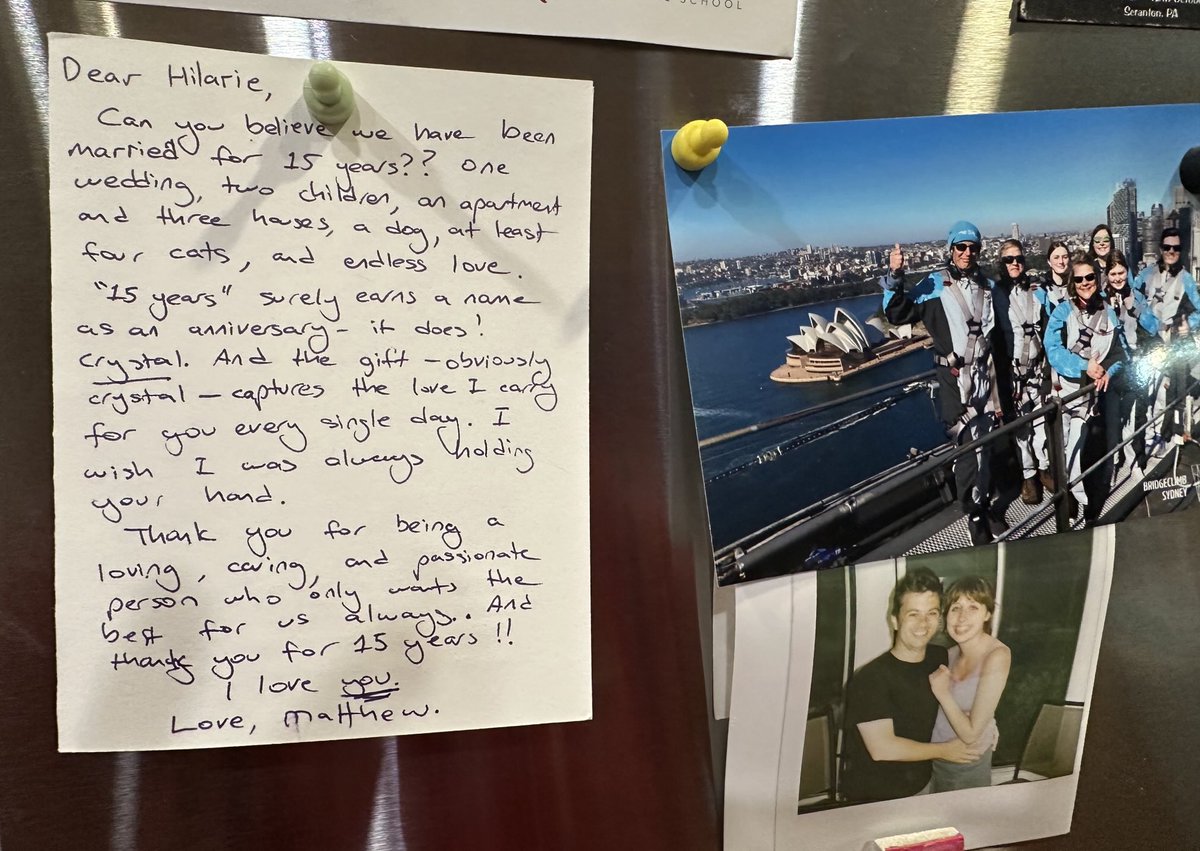 SCHOOL
Scranton, PA
Dear Hilarie,
Can you believe we have been
married for 15 years?? One
wedding, two children, an apartment
and three houses, a dog, at least
four cats, and endless love.
"15 years" surely earns a name
as an anniversary - it does!
Crystal. And the gift - obviously
crystal - captures the love I carry
for you every single day. I
wish I was always holding
your hand.
Thank you for being a
loving, caring, and passionate
person who only wants the
best for us always.. And
thank you for 15 years!!
I love you.
Love, Matthew.
BRIDGECLIMB
SYDNEY